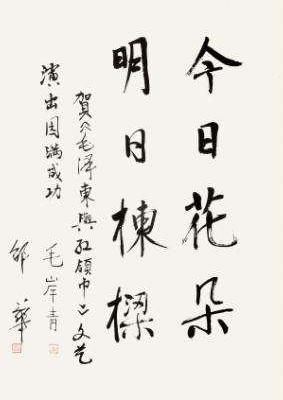 今日花朵
明日棟樑
賀《毛泽東與红领巾》文艺
演出圆满成功
毛岸青
邵華